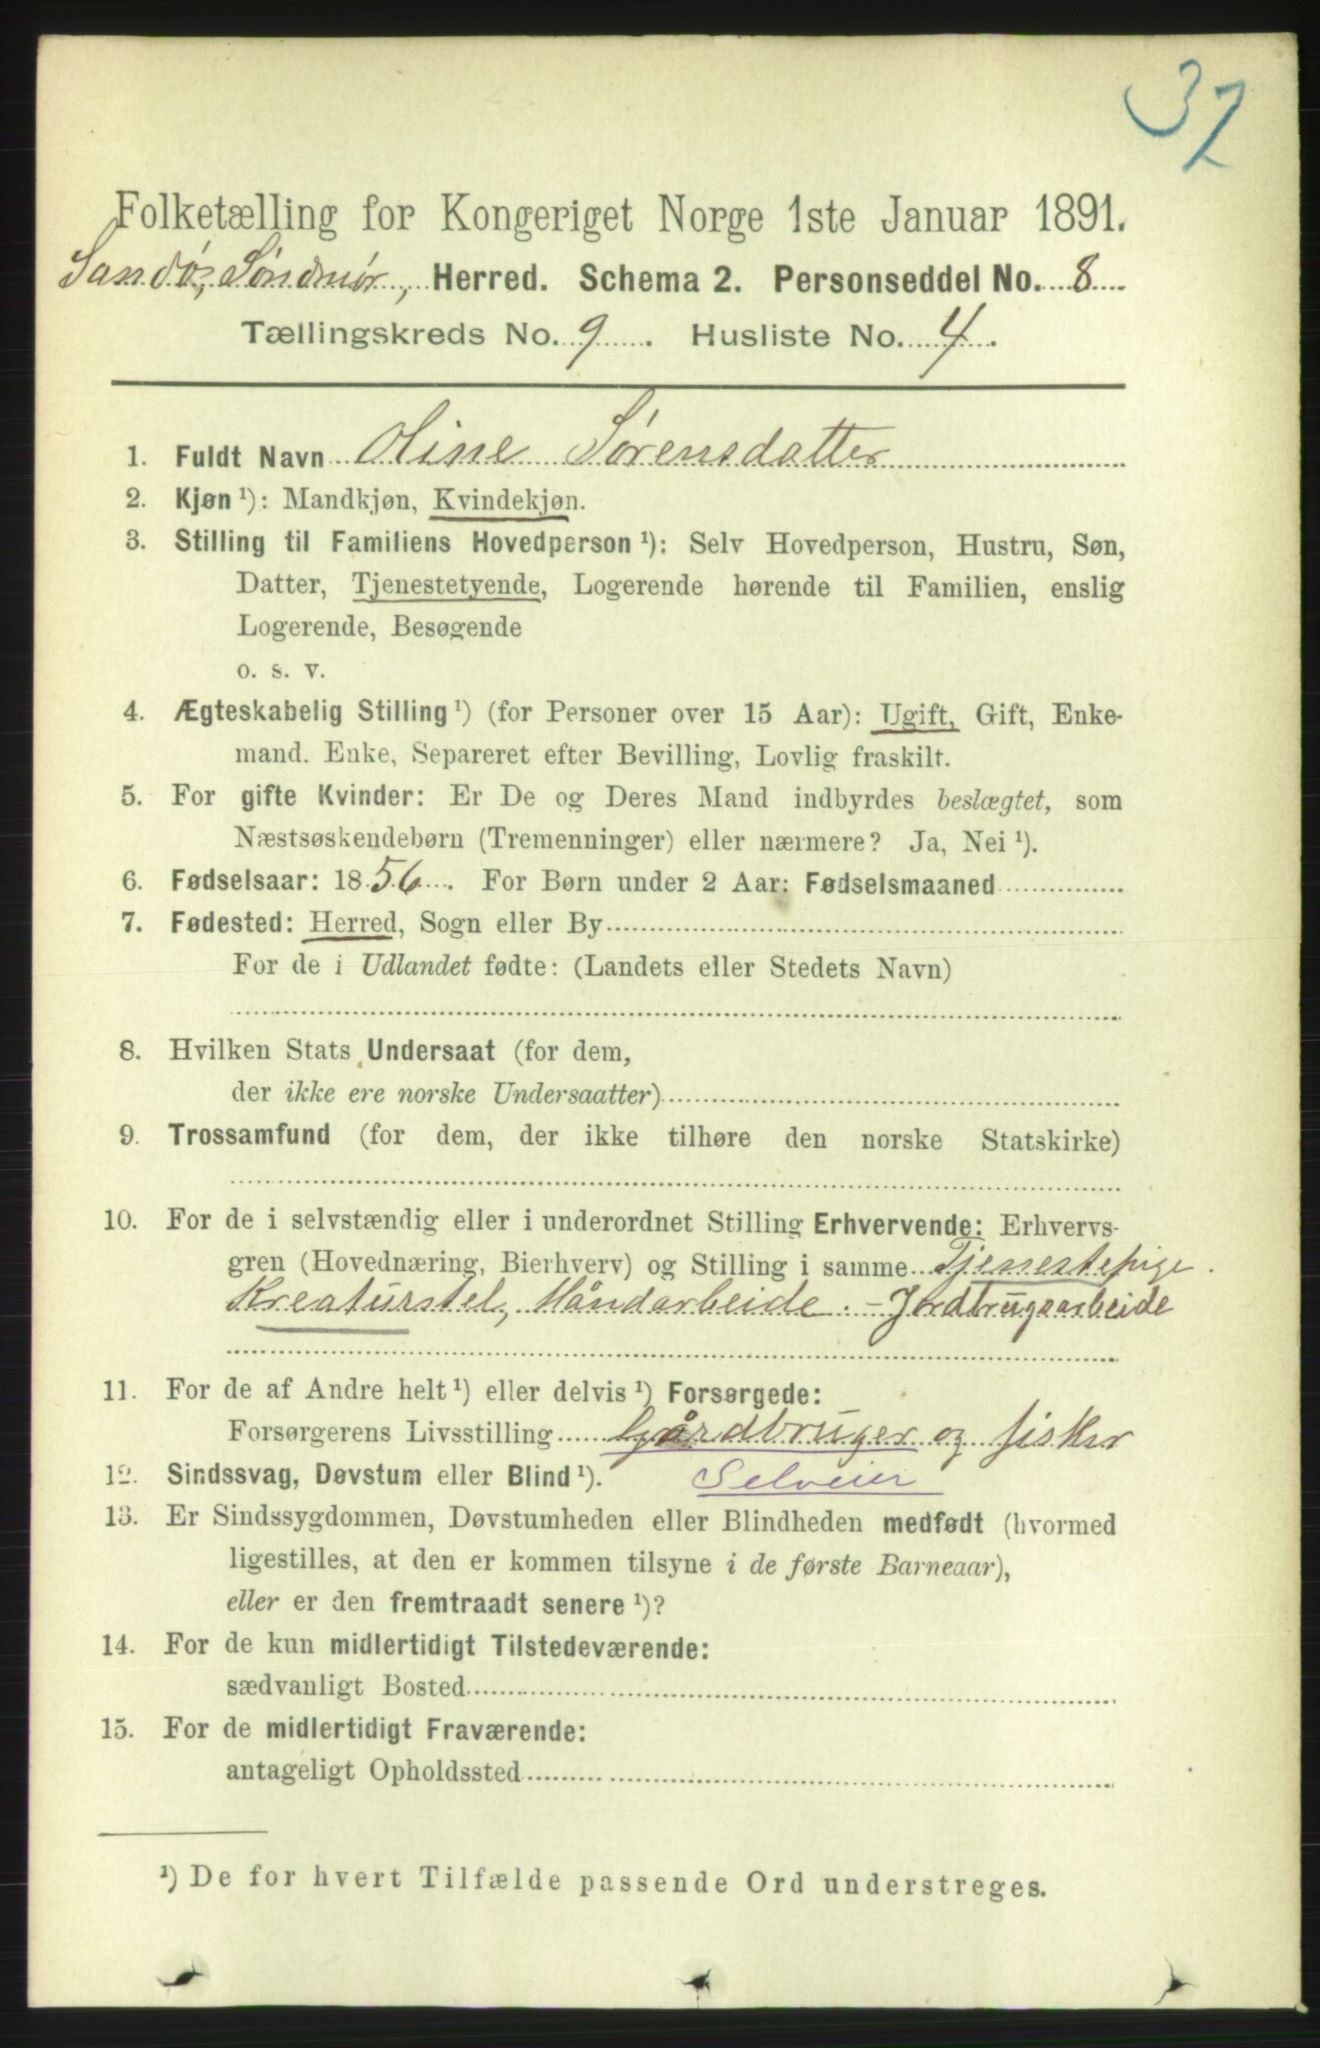 37
Folketælling for Kongeriget Norge 1ste Januar 1891.
Sandø, Søndmør, Herred. Schema 2. Personseddel No. 8
Tællingskreds No. 9. Husliste No. 4.
1. Fuldt Navn Oline Sørensdatter
2. Kjøn ¹): Mandkjøn, Kvindekjøn.
3. Stilling til Familiens Hovedperson ¹): Selv Hovedperson, Hustru, Søn,
Datter, Tjenestetyende, Logerende hørende til Familien, enslig
Logerende, Besøgende
o. s. v.
4. Ægteskabelig Stilling ¹) (for Personer over 15 Aar): Ugift, Gift, Enke-
mand. Enke, Separeret efter Bevilling, Lovlig fraskilt.
5. For gifte Kvinder: Er De og Deres Mand indbyrdes beslægtet, som
Næstsøskendebørn (Tremenninger) eller nærmere? Ja, Nei ¹).
6. Fødselsaar: 1856. For Børn under 2 Aar: Fødselsmaaned
7. Fødested: Herred, Sogn eller By
For de i Udlandet fødte: (Landets eller Stedets Navn)
8. Hvilken Stats Undersaat (for dem,
der ikke ere norske Undersaatter)
9. Trossamfund (for dem, der ikke tilhøre den norske Statskirke)
10. For de i selvstændig eller i underordnet Stilling Erhvervende: Erhvervs-
gren (Hovednæring, Bierhverv) og Stilling i samme Tjenestepige.
Kreaturstel, Håndarbeide. - Jordbrugsarbeide
11. For de af Andre helt ¹) eller delvis ¹) Forsørgede:
Forsørgerens Livsstilling Gårdbruger og fisker
12. Sindssvag, Døvstum eller Blind ¹). Selveier
13. Er Sindssygdommen, Døvstumheden eller Blindheden medfødt (hvormed
ligestilles, at den er kommen tilsyne i de første Barneaar),
eller er den fremtraadt senere ¹)?
14. For de kun midlertidigt Tilstedeværende:
sædvanligt Bosted
15. For de midlertidigt Fraværende:
antageligt Opholdssted
¹) De for hvert Tilfælde passende Ord understreges.